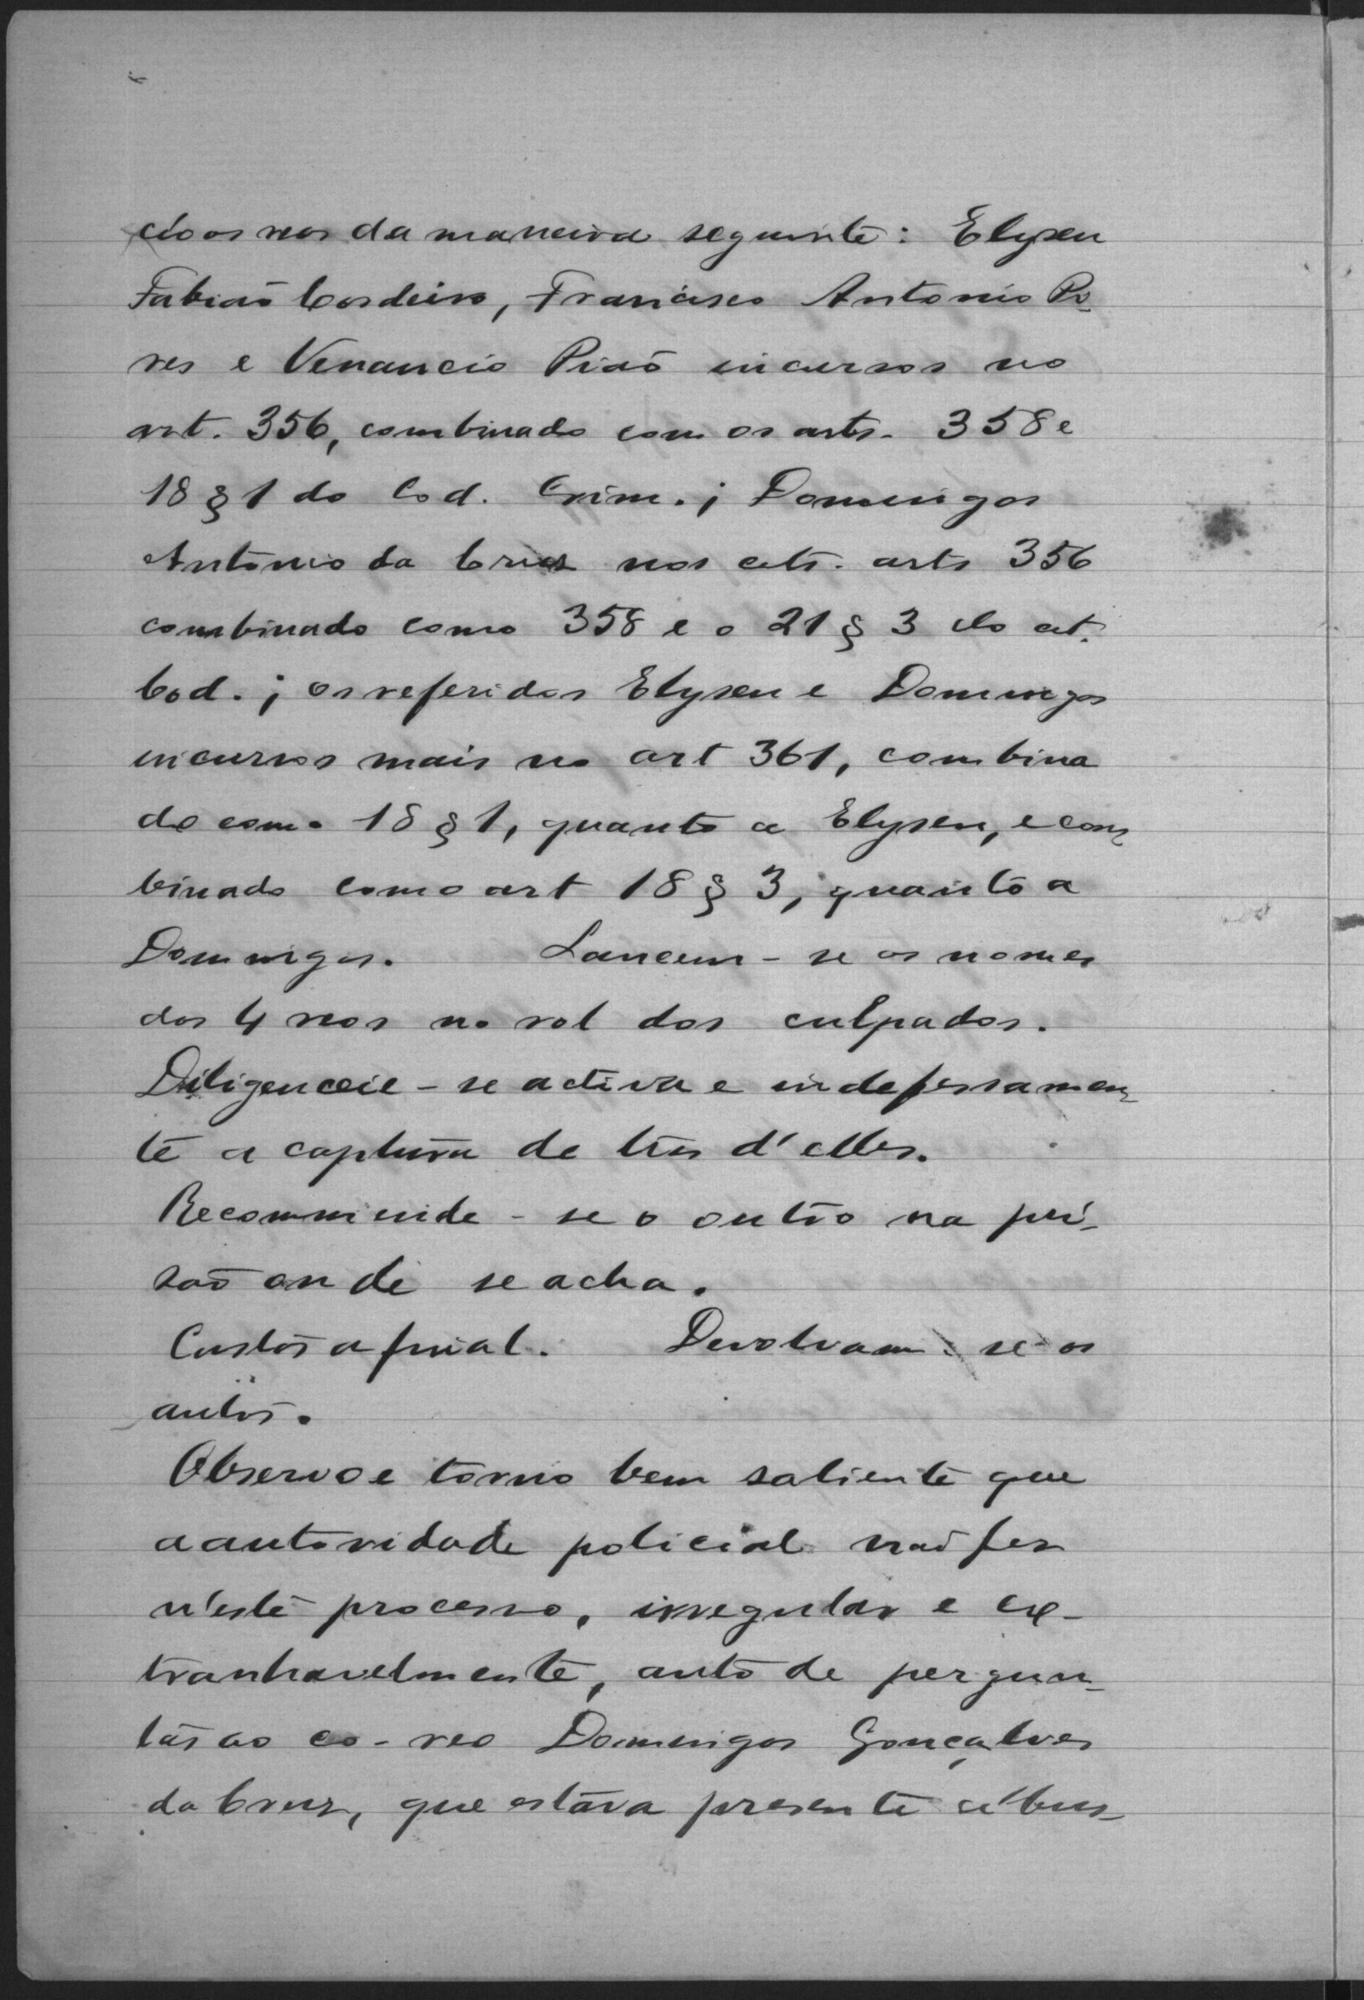 cio os reos da maneira seguinte: Elyseu
Fabião Cordeiro, Francisco Antonio Pi-
res e Venancio Pião incursos no
art. 356, combinado com os arts. 358 e
18 § 1 do Cod. Crim.; Domingos
Antonio da Cruz nos cits. arts 356
combinado com o 358 e o 21 § 3 do cit.
Cod.; os referidos Elyseu e Domingos
incursos mais no art 361, combina
do com o 18 § 1, quanto a Elyseu, e com
binado com o art 18 § 3, quanto a
Domingos. Lancem-se os nomes
dos 4 reos no rol dos culpados.
Diligencie-se activa e indefessamen
te a captura de tres d'elles.
Recommende-se o outro na pri-
são onde se acha.
Custas a final. Devolvam-se os
autos.
Observo e torno bem saliente que
a autoridade policial não fez
n'este processo, irregular e ex-
tranhavelmente, auto de pergun-
tas ao co-reo Domingos Gonçalves
da Cruz, que estava presente á bus-